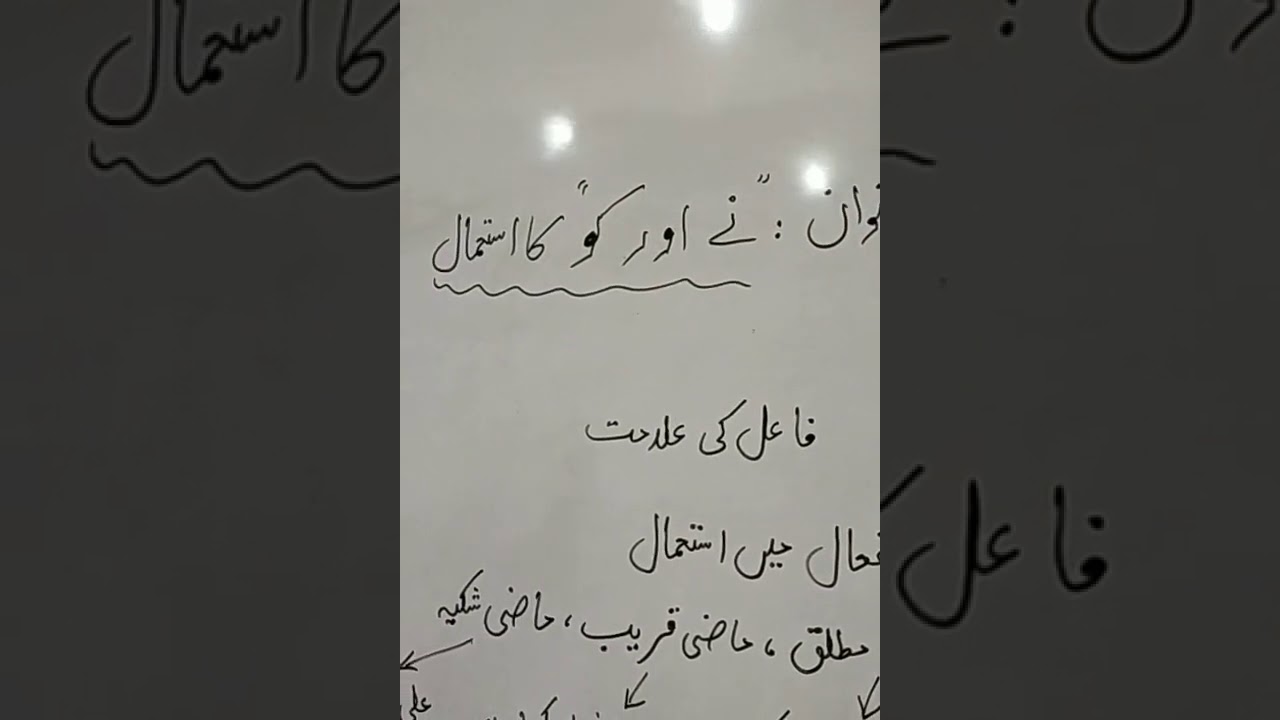 عنوان : "نے اور کو" کا استعمال
فاعل کی علامت
افعال میں استعمال
مطلق ، ماضی قریب ، ماضی شکیہ